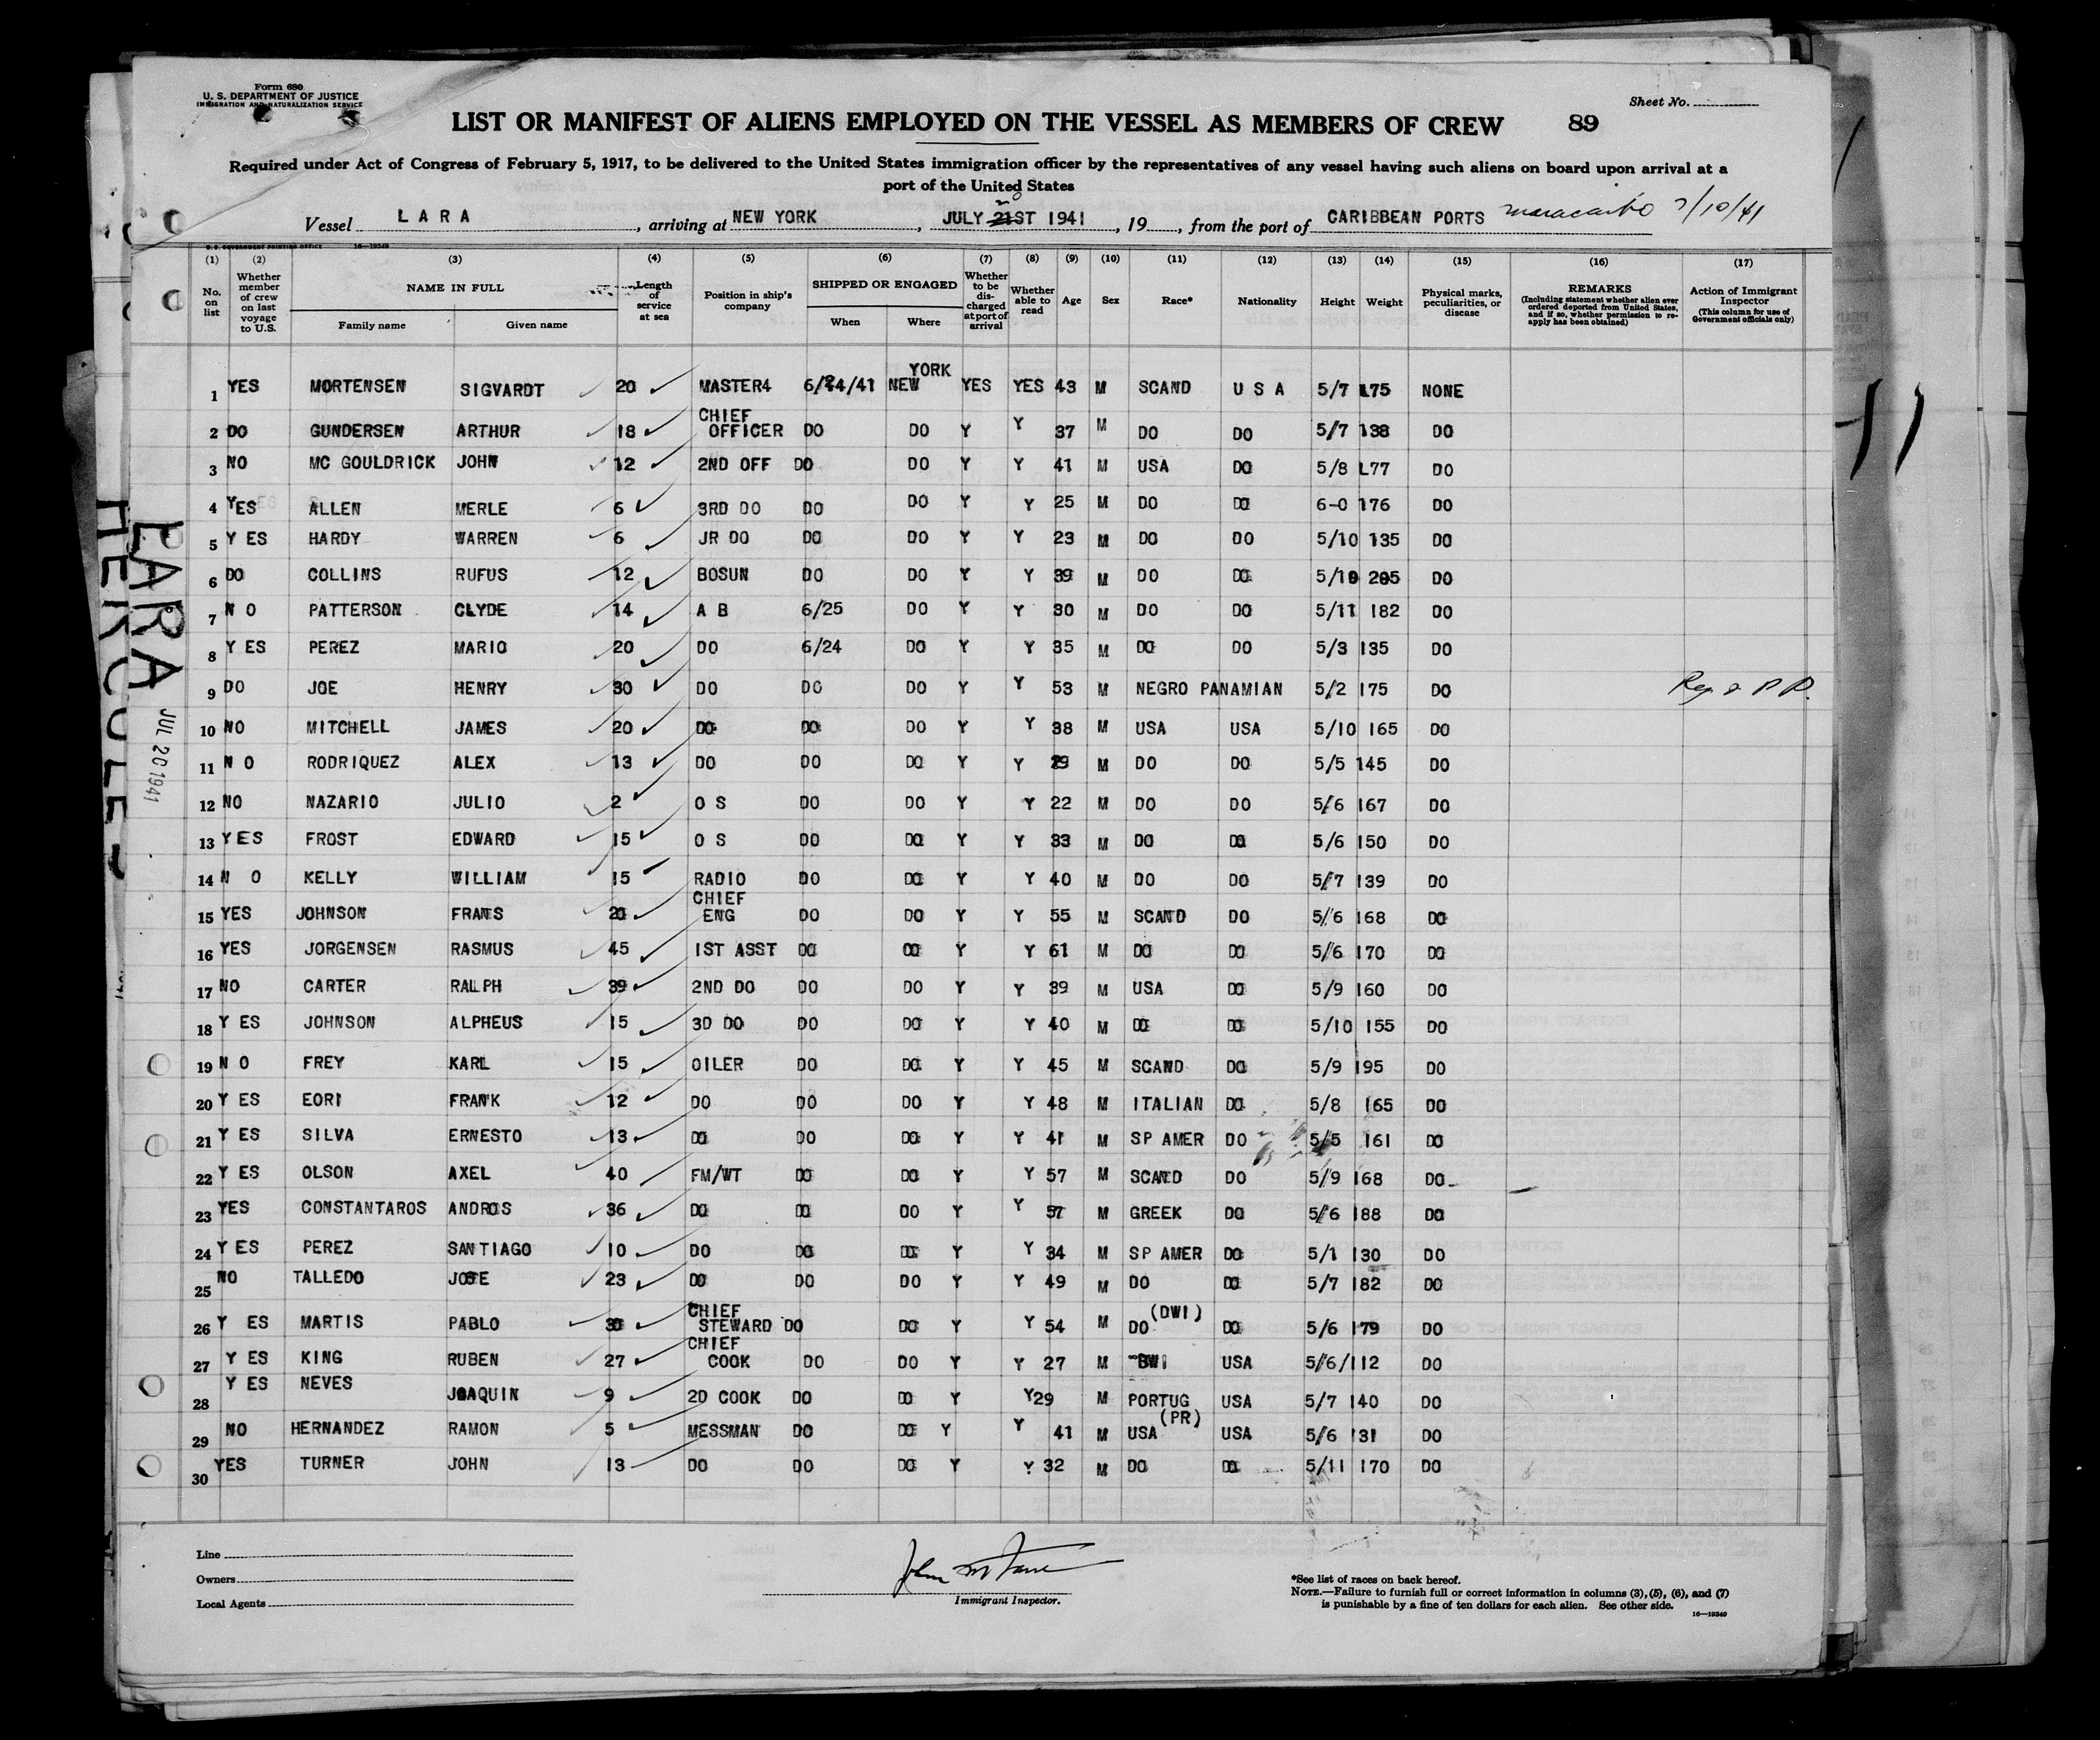 Form 680
U. S. DEPARTMENT OF JUSTICE
IMMIGRATION AND NATURALIZATION SERVICE
Sheet No.
LIST OR MANIFEST OF ALIENS EMPLOYED ON THE VESSEL AS MEMBERS OF CREW 89
Required under Act of Congress of February 5, 1917, to be delivered to the United States immigration officer by the representatives of any vessel having such aliens on board upon arrival at a
port of the United States
20
Vessel LARA, arriving at NEW YORK, JULY 21ST 1941, 19, from the port of CARIBBEAN PORTS Maracaibo 7/10/41
U. S. GOVERNMENT PRINTING OFFICE 16—19349
(1) (2) (3) (4) (5) (6) (7) (8) (9) (10) (11) (12) (13) (14) (15) (16) (17)
No. on list
Whether member of crew on last voyage to U.S.
NAME IN FULL
Family name Given name
Length of service at sea
Position in ship's company
SHIPPED OR ENGAGED
When Where
Whether to be discharged at port of arrival
Whether able to read
Age
Sex
Race*
Nationality
Height
Weight
Physical marks, peculiarities, or disease
REMARKS
(Including statement whether alien ever ordered deported from United States, and if so, whether permission to reapply has been obtained)
Action of Immigrant Inspector
(This column for use of Government officials only)
1 YES MORTENSEN SIGVARDT 20 MASTER4 6/24/41 NEW YORK YES YES 43 M SCAND U S A 5/7 175 NONE
2 DO GUNDERSEN ARTHUR 18 CHIEF OFFICER DO DO Y Y 37 M DO DO 5/7 138 DO
3 NO MC GOULDRICK JOHN 12 2ND OFF DO DO Y Y 41 M USA DO 5/8 L77 DO
4 YES ALLEN MERLE 6 3RD DO DO DO Y Y 25 M DO DO 6-0 176 DO
5 Y ES HARDY WARREN 6 JR DO DO DO Y Y 23 M DO DO 5/10 135 DO
6 DO COLLINS RUFUS 12 BOSUN DO DO Y Y 39 M DO DO 5/10 205 DO
7 N O PATTERSON CLYDE 14 A B 6/25 DO Y Y 30 M DO DO 5/11 182 DO
8 Y ES PEREZ MARIO 20 DO 6/24 DO Y Y 35 M DO DO 5/3 135 DO
9 DO JOE HENRY 30 DO DO DO Y Y 53 M NEGRO PANAMIAN 5/2 175 DO
10 NO MITCHELL JAMES 20 DO DO DO Y Y 38 M USA USA 5/10 165 DO
11 N O RODRIQUEZ ALEX 13 DO DO DO Y Y 29 M DO DO 5/5 145 DO
12 NO NAZARIO JULIO 2 O S DO DO Y Y 22 M DO DO 5/6 167 DO
13 YES FROST EDWARD 15 O S DO DO Y Y 33 M DO DO 5/6 150 DO
14 N O KELLY WILLIAM 15 RADIO DO DO Y Y 40 M DO DO 5/7 139 DO
15 YES JOHNSON FRANS 20 CHIEF ENG DO DO Y Y 55 M SCAND DO 5/6 168 DO
16 YES JORGENSEN RASMUS 45 1ST ASST DO DO Y Y 61 M DO DO 5/6 170 DO
17 NO CARTER RALPH 39 2ND DO DO DO Y Y 39 M USA DO 5/9 160 DO
18 Y ES JOHNSON ALPHEUS 15 3D DO DO DO Y Y 40 M DO DO 5/10 155 DO
19 N O FREY KARL 15 OILER DO DO Y Y 45 M SCAND DO 5/9 195 DO
20 Y ES EORI FRANK 12 DO DO DO Y Y 48 M ITALIAN DO 5/8 165 DO
21 Y ES SILVA ERNESTO 13 DO DO DO Y Y 41 M SP AMER DO 5/5 161 DO
22 Y ES OLSON AXEL 40 FM/WT DO DO Y Y 57 M SCAND DO 5/9 168 DO
23 YES CONSTANTAROS ANDROS 36 DO DO DO Y Y 57 M GREEK DO 5/6 188 DO
24 Y ES PEREZ SANTIAGO 10 DO DO DO Y Y 34 M SP AMER DO 5/1 130 DO
25 NO TALLEDO JOSE 23 DO DO DO Y Y 49 M DO DO 5/7 182 DO
26 Y ES MARTIS PABLO 30 CHIEF STEWARD DO DO Y Y 54 M DO (DWI) DO 5/6 179 DO
27 Y ES KING RUBEN 27 CHIEF COOK DO DO Y Y 27 M BWI USA 5/6/112 DO
28 Y ES NEVES JOAQUIN 9 2D COOK DO DO Y Y29 M PORTUG USA 5/7 140 DO
29 NO HERNANDEZ RAMON 5 MESSMAN DO DO Y Y 41 M USA (PR) USA 5/6 131 DO
30 YES TURNER JOHN 13 DO DO DO Y Y 32 M DO DO 5/11 170 DO
LARA
HERCULES
JUL 20 1941
Line
Owners
Local Agents
Immigrant Inspector.
*See list of races on back hereof.
NOTE.—Failure to furnish full or correct information in columns (3), (5), (6), and (7)
is punishable by a fine of ten dollars for each alien. See other side.
16—19349